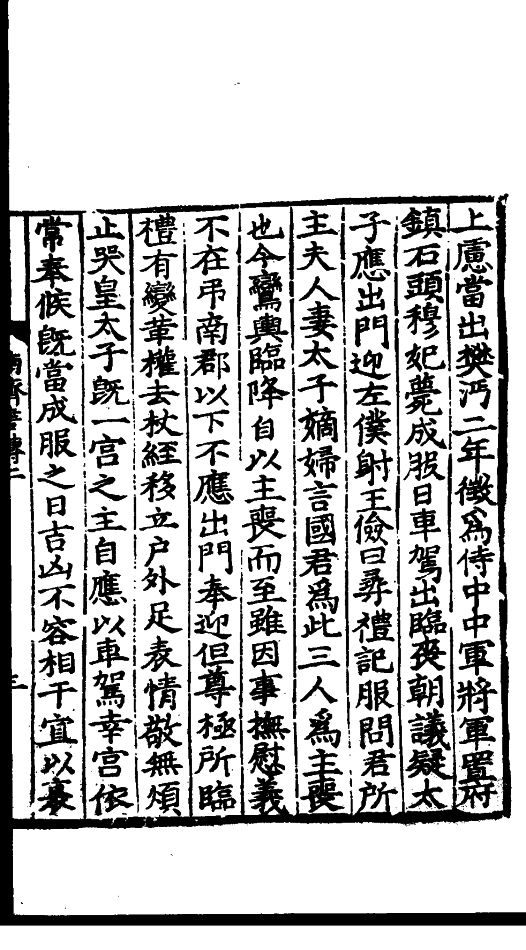 上慮當出樊沔二年徵爲侍中中軍將軍置府
鎮石頭穆妃薨成服日車駕出臨喪朝議疑太
子應出門迎左僕射王儉曰尋禮記服問君所
主夫人妻太子嫡婦言國君爲此三人爲主喪
也今鸞輿臨降自以主喪而至雖因事撫慰義
不在弔南郡以下不應出門奉迎但尊極所臨
禮有變革權去杖絰移立户外足表情敬無煩
止哭皇太子旣一宮之主自應以車駕幸宮依
常奉候旣當成服之日吉凶不容相干宜以衰
南齊書傳二
三